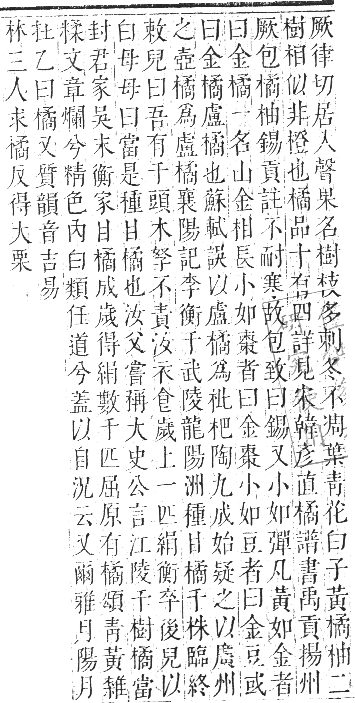 厥律切居入聲果名樹枝多刺冬不凋葉青花白子黃橘柚二
樹相似非橙也橘品十有四詳見宋韓彥直橘譜書禹貢揚州
厥包橘柚錫貢註不耐寒故包致曰錫又小如彈凡黃如金者
曰金橘一名山金柑長小如棗者曰金棗小如豆者曰金豆或
曰金橘盧橘也蘇軾誤以盧橘為枇杷陶九成始疑之以廣州
之壺橘為盧橘襄陽記李衡于武陵龍陽洲種甘橘千株臨終
敕兒曰吾有千頭木孥不責汝衣食歲上一匹絹衡卒後兒以
白母母曰當是種甘橘也汝父嘗稱太史公言江陵千樹橘當
封君家吳末衡家甘橘成歲得絹數千匹屈原有橘頌青黃雜
糅文章爛兮精色內白類任道兮蓋以自況云又爾雅月陽月
在乙曰橘又質韻音吉易
林三人求橘反得大栗